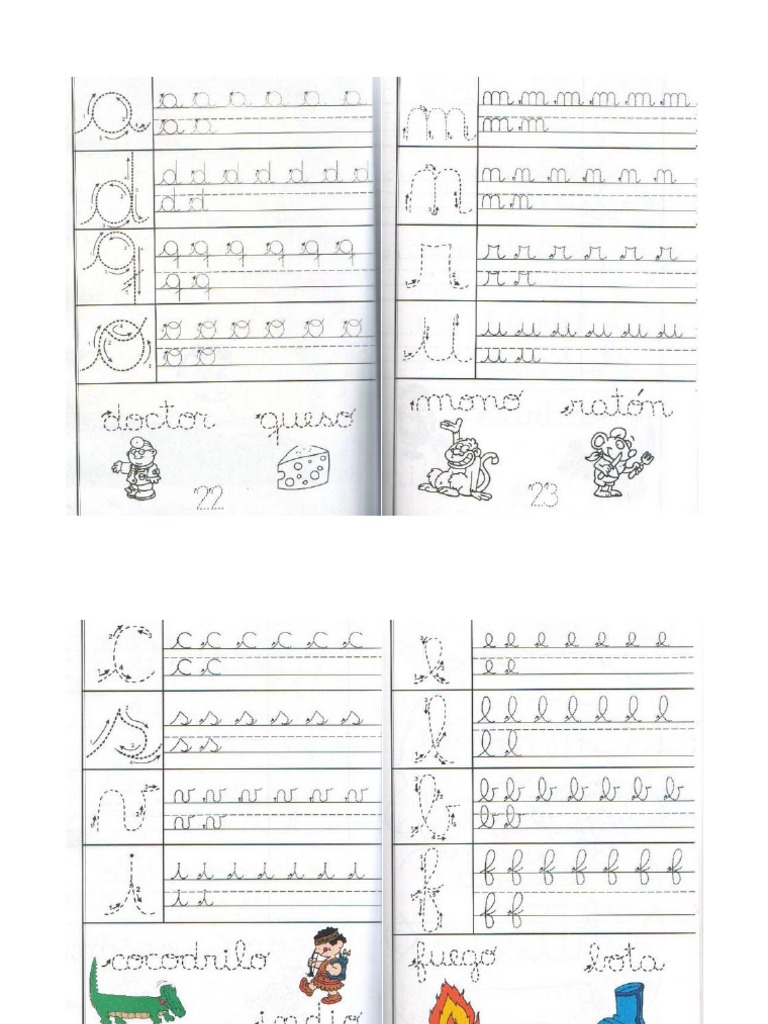 a a a a a a a
a a
d d d d d d d d
d d
q q q q q q q
q q
o o o o o o o
o o
doctor queso
22
m m m m m m m
m m
n n n n n n n
n n
r r r r r r r
r r
u u u u u u u
u u
mono ratón
23
c c c c c c c
c c
s s s s s s s
s s
v v v v v v v
v v
i i i i i i i i
i i
cocodrilo
indio
e e e e e e e e
e e
l l l l l l l l
l l
b b b b b b b b
b b
f f f f f f f f
f f
fuego bota